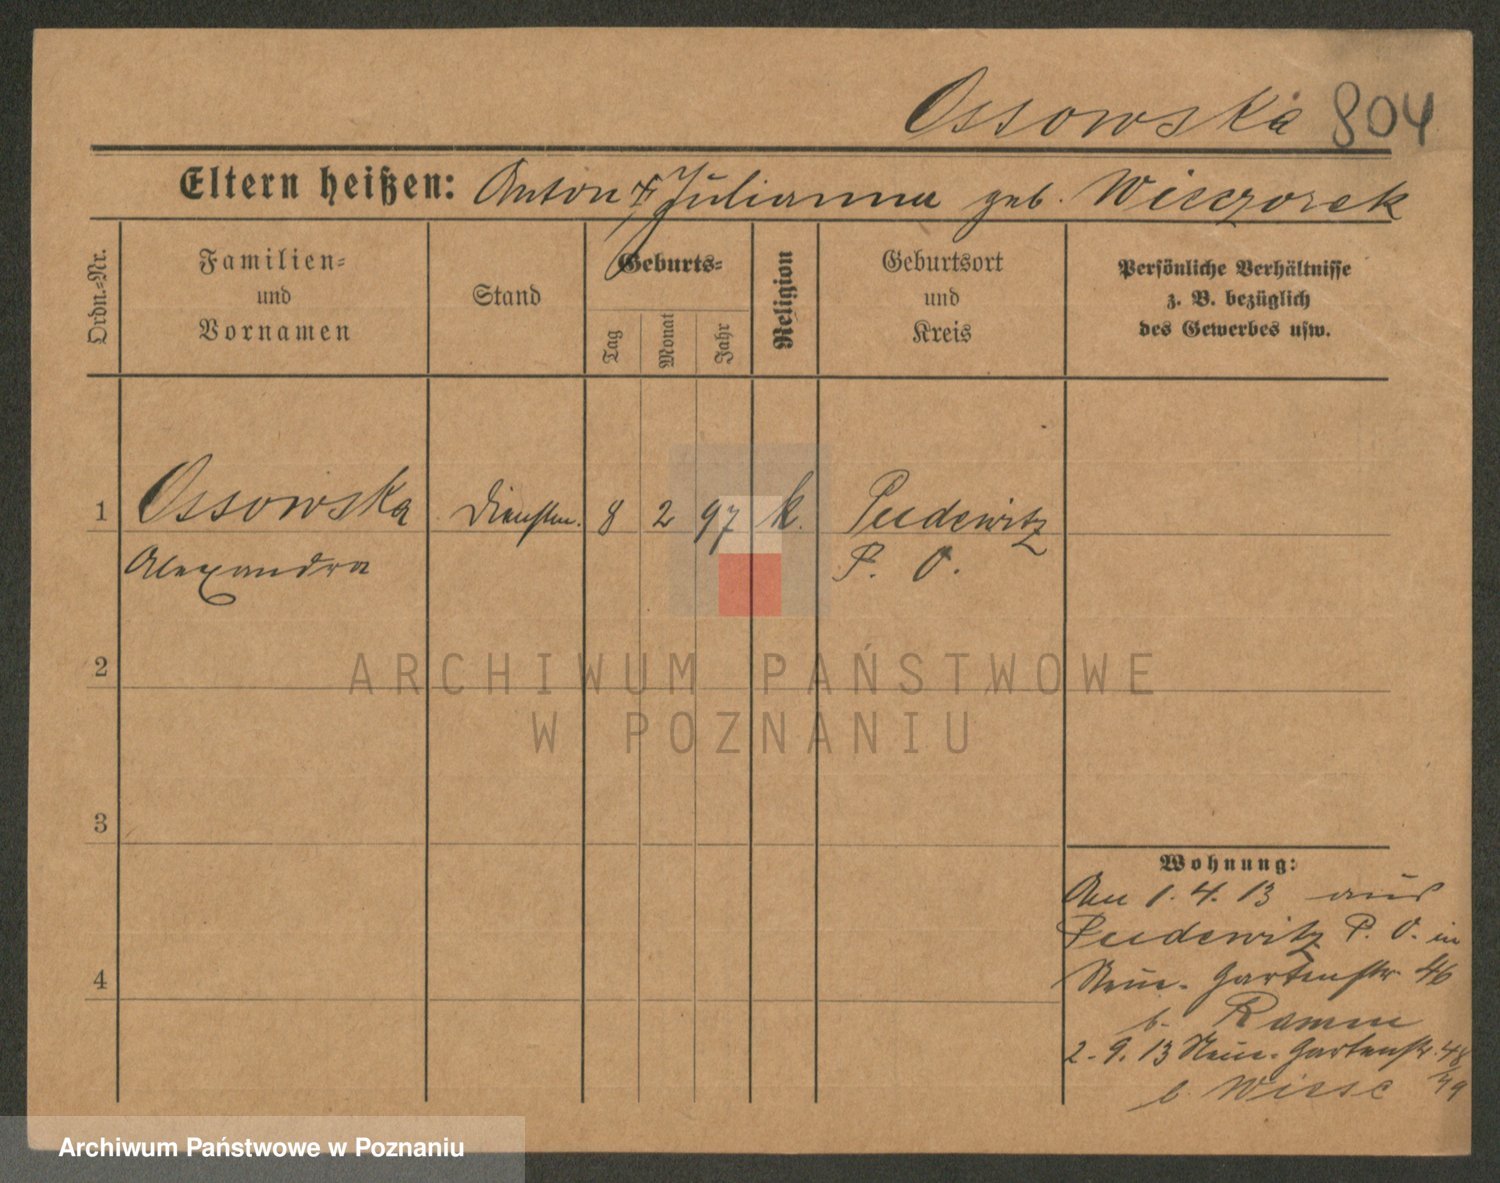 Ossowska 804
Eltern heißen: Anton & Julianna geb. Wieczorek
Ordn.-Nr.
Familien-
und
Vornamen
Stand
Geburts-
Tag
Monat
Jahr
Religion
Geburtsort
und
Kreis
Persönliche Verhältnisse
z. B. bezüglich
des Gewerbes usw.
1 Ossowska Dienstm. 8 2 97 k. Pudewitz
Alexandra P. O.
2
3
4
Wohnung:
Am 1. 4. 13 aus
Pudewitz P. O. in
Neue- Gartenstr 46
b. Ramm
2. 9. 13 Neue- Gartenstr. 48/49
b. Wiese
ARCHIWUM PAŃSTWOWE
W POZNANIU
Archiwum Państwowe w Poznaniu